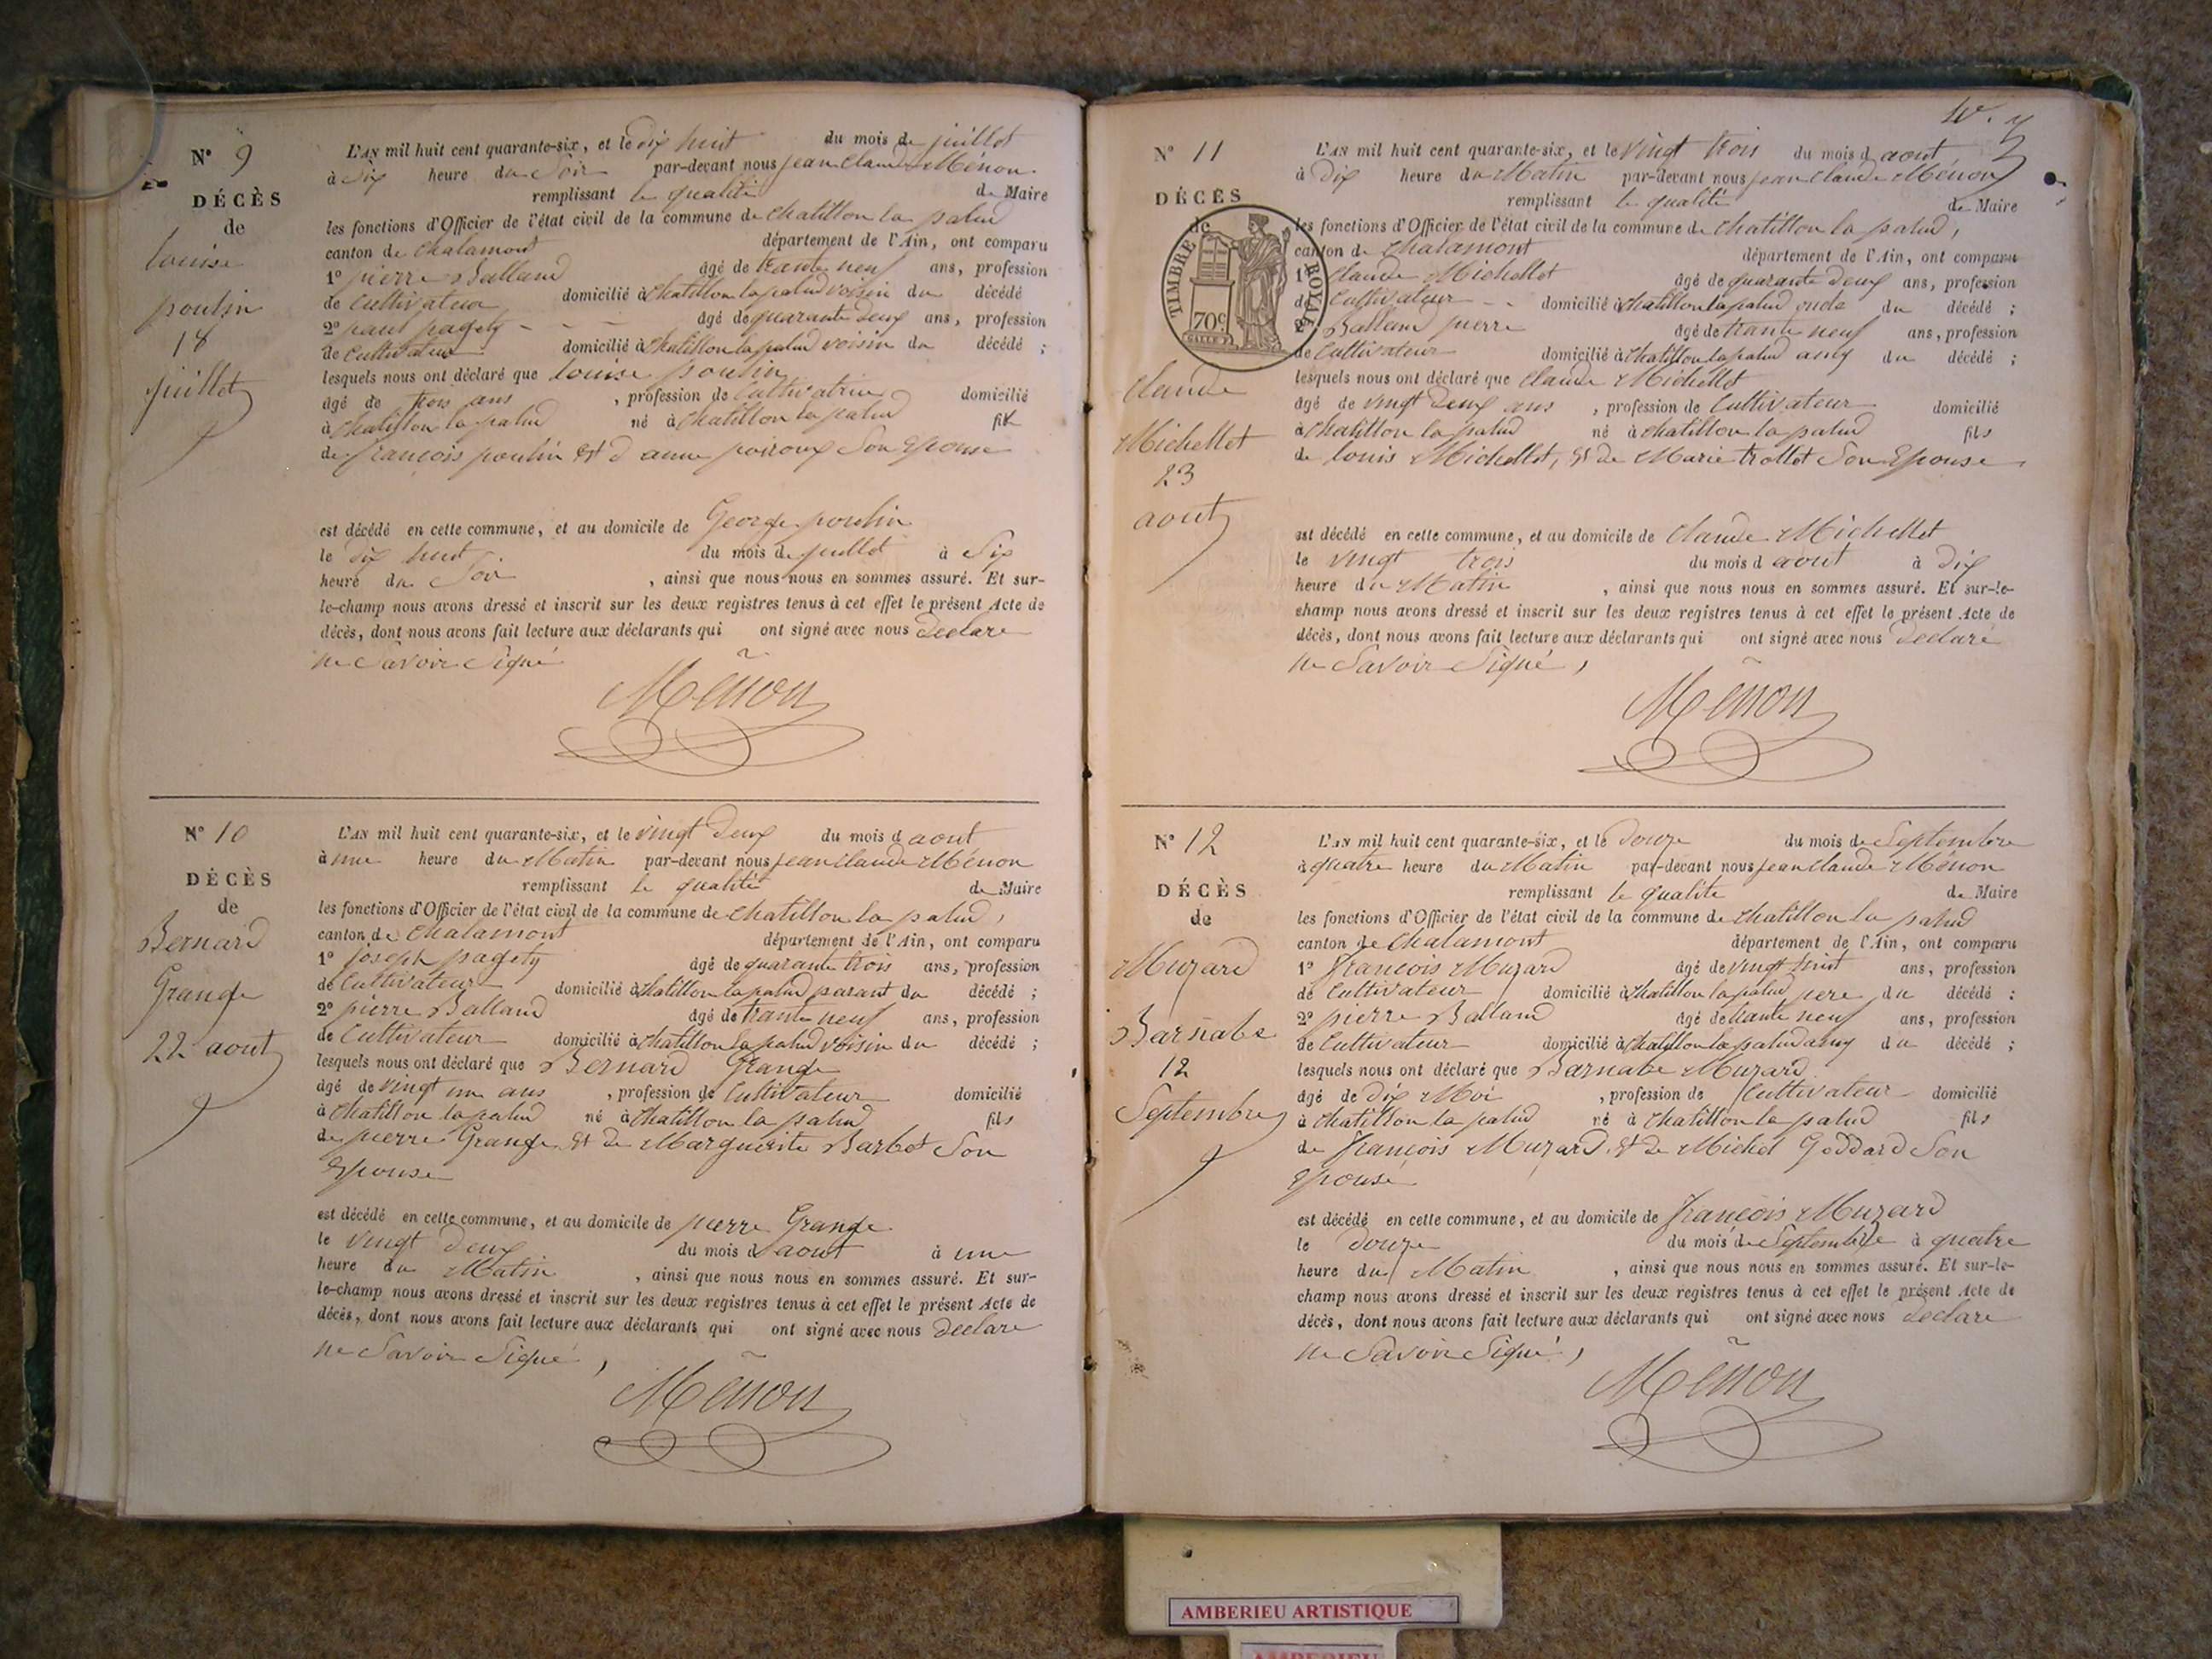 N° 9
DÉCÈS
de
louise
poulin
18
juillet
L'AN mil huit cent quarante-six, et le dix huit du mois de juillet
à Six heure du Soir par-devant nous jean claude Ménon
remplissant le qualité de Maire
les fonctions d'Officier de l'état civil de la commune de chatillon la palud
canton de chalamont département de l'Ain, ont comparu
1° pierre Balland âgé de trante neuf ans, profession
de Cultivateur domicilié à chatillon la palud voisin du décédé
2° paul pagety - - - âgé de quarante deux ans, profession
de Cultivateur domicilié à chatillon la palud voisin du décédé ;
lesquels nous ont déclaré que louise poulin
âgé de trois ans , profession de Cultivatrice domicilié
à chatillon la palud né à chatillon la palud fil
de francois poulin Et d anne poiroux Son Epouse
est décédé en cette commune, et au domicile de George poulin
le dix huit du mois de juillet à Six
heure du Soir , ainsi que nous nous en sommes assuré. Et sur-
le-champ nous avons dressé et inscrit sur les deux registres tenus à cet effet le présent Acte de
décès, dont nous avons fait lecture aux déclarants qui ont signé avec nous Declare
ne Savoir Signé
Ménon
N° 10
DÉCÈS
de
Bernard
Grange
22 aout
L'AN mil huit cent quarante-six, et le vingt Deux du mois d aout
à une heure du Matin par-devant nous jean claude Ménon
remplissant le qualité de Maire
les fonctions d'Officier de l'état civil de la commune de chatillon la palud,
canton de chalamont département de l'Ain, ont comparu
1° joseph pagety âgé de quarante trois ans, profession
de Cultivateur domicilié à chatillon la palud parant du décédé ;
2° pierre Balland âgé de trante neuf ans, profession
de Cultivateur domicilié à chatillon la palud voisin du décédé ;
lesquels nous ont déclaré que Bernard Grange
âgé de vingt un ans , profession de Cultivateur domicilié
à chatillon la palud né à chatillon la palud fils
de pierre Grange Et de Marguerite Barbet Son
Epouse
est décédé en cette commune, et au domicile de pierre Grange
le vingt Deux du mois d aout à une
heure du Matin , ainsi que nous nous en sommes assuré. Et sur-
le-champ nous avons dressé et inscrit sur les deux registres tenus à cet effet le présent Acte de
décès, dont nous avons fait lecture aux déclarants qui ont signé avec nous Declare
ne Savoir Signé,
Ménon
N° 11
DÉCÈS
de
TIMBRE ROYAL
70c
claude
Michellet
23
aout
L'AN mil huit cent quarante-six, et le vingt trois du mois d aout
à Dix heure du Matin par-devant nous jean claude Ménon
remplissant le qualité de Maire
les fonctions d'Officier de l'état civil de la commune de chatillon la palud,
canton de chalamont département de l'Ain, ont comparu
1° claude Michellet âgé de quarante Deux ans, profession
de Cultivateur - - domicilié à chatillon la palud oncle du décédé ;
2° Balland pierre âgé de trante neuf ans, profession
de Cultivateur domicilié à chatillon la palud amy du décédé ;
lesquels nous ont déclaré que claude Michellet
âgé de vingt Deux ans , profession de Cultivateur domicilié
à chatillon la palud né à chatillon la palud fils
de louis Michellet, Et de Marie trollet Son Epouse
est décédé en cette commune, et au domicile de claude Michellet
le vingt trois du mois d aout à Dix
heure du Matin , ainsi que nous nous en sommes assuré. Et sur-le-
champ nous avons dressé et inscrit sur les deux registres tenus à cet effet le présent Acte de
décès, dont nous avons fait lecture aux déclarants qui ont signé avec nous Declare
ne Savoir Signé,
Ménon
N° 12
DÉCÈS
de
Muzard
Barnabe
12
Septembre
L'AN mil huit cent quarante-six, et le Douze du mois de Septembre
à quatre heure du Matin par-devant nous jean claude Ménon
remplissant le qualité de Maire
les fonctions d'Officier de l'état civil de la commune de chatillon la palud
canton de chalamont département de l'Ain, ont comparu
1° francois Muzard âgé de vingt huit ans, profession
de Cultivateur domicilié à chatillon la palud pere du décédé ;
2° pierre Balland âgé de trante neuf ans, profession
de Cultivateur domicilié à chatillon la palud amy du décédé ;
lesquels nous ont déclaré que Barnabe Muzard
âgé de Dix Moi , profession de Cultivateur domicilié
à chatillon la palud né à chatillon la palud fils
de francois Muzard Et de Michel Goddard Son
Epouse
est décédé en cette commune, et au domicile de francois Muzard
le Douze du mois de Septembre à quatre
heure du Matin , ainsi que nous nous en sommes assuré. Et sur-le-
champ nous avons dressé et inscrit sur les deux registres tenus à cet effet le présent Acte de
décès, dont nous avons fait lecture aux déclarants qui ont signé avec nous Declare
ne Savoir Signé,
Ménon
AMBERIEU ARTISTIQUE
AMBERIEU